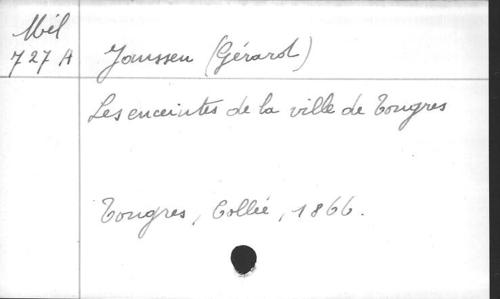 Mél
727 A Janssen (Gérard)
Les enceintes de la ville de Tongres
Tongres, Collée, 1866.